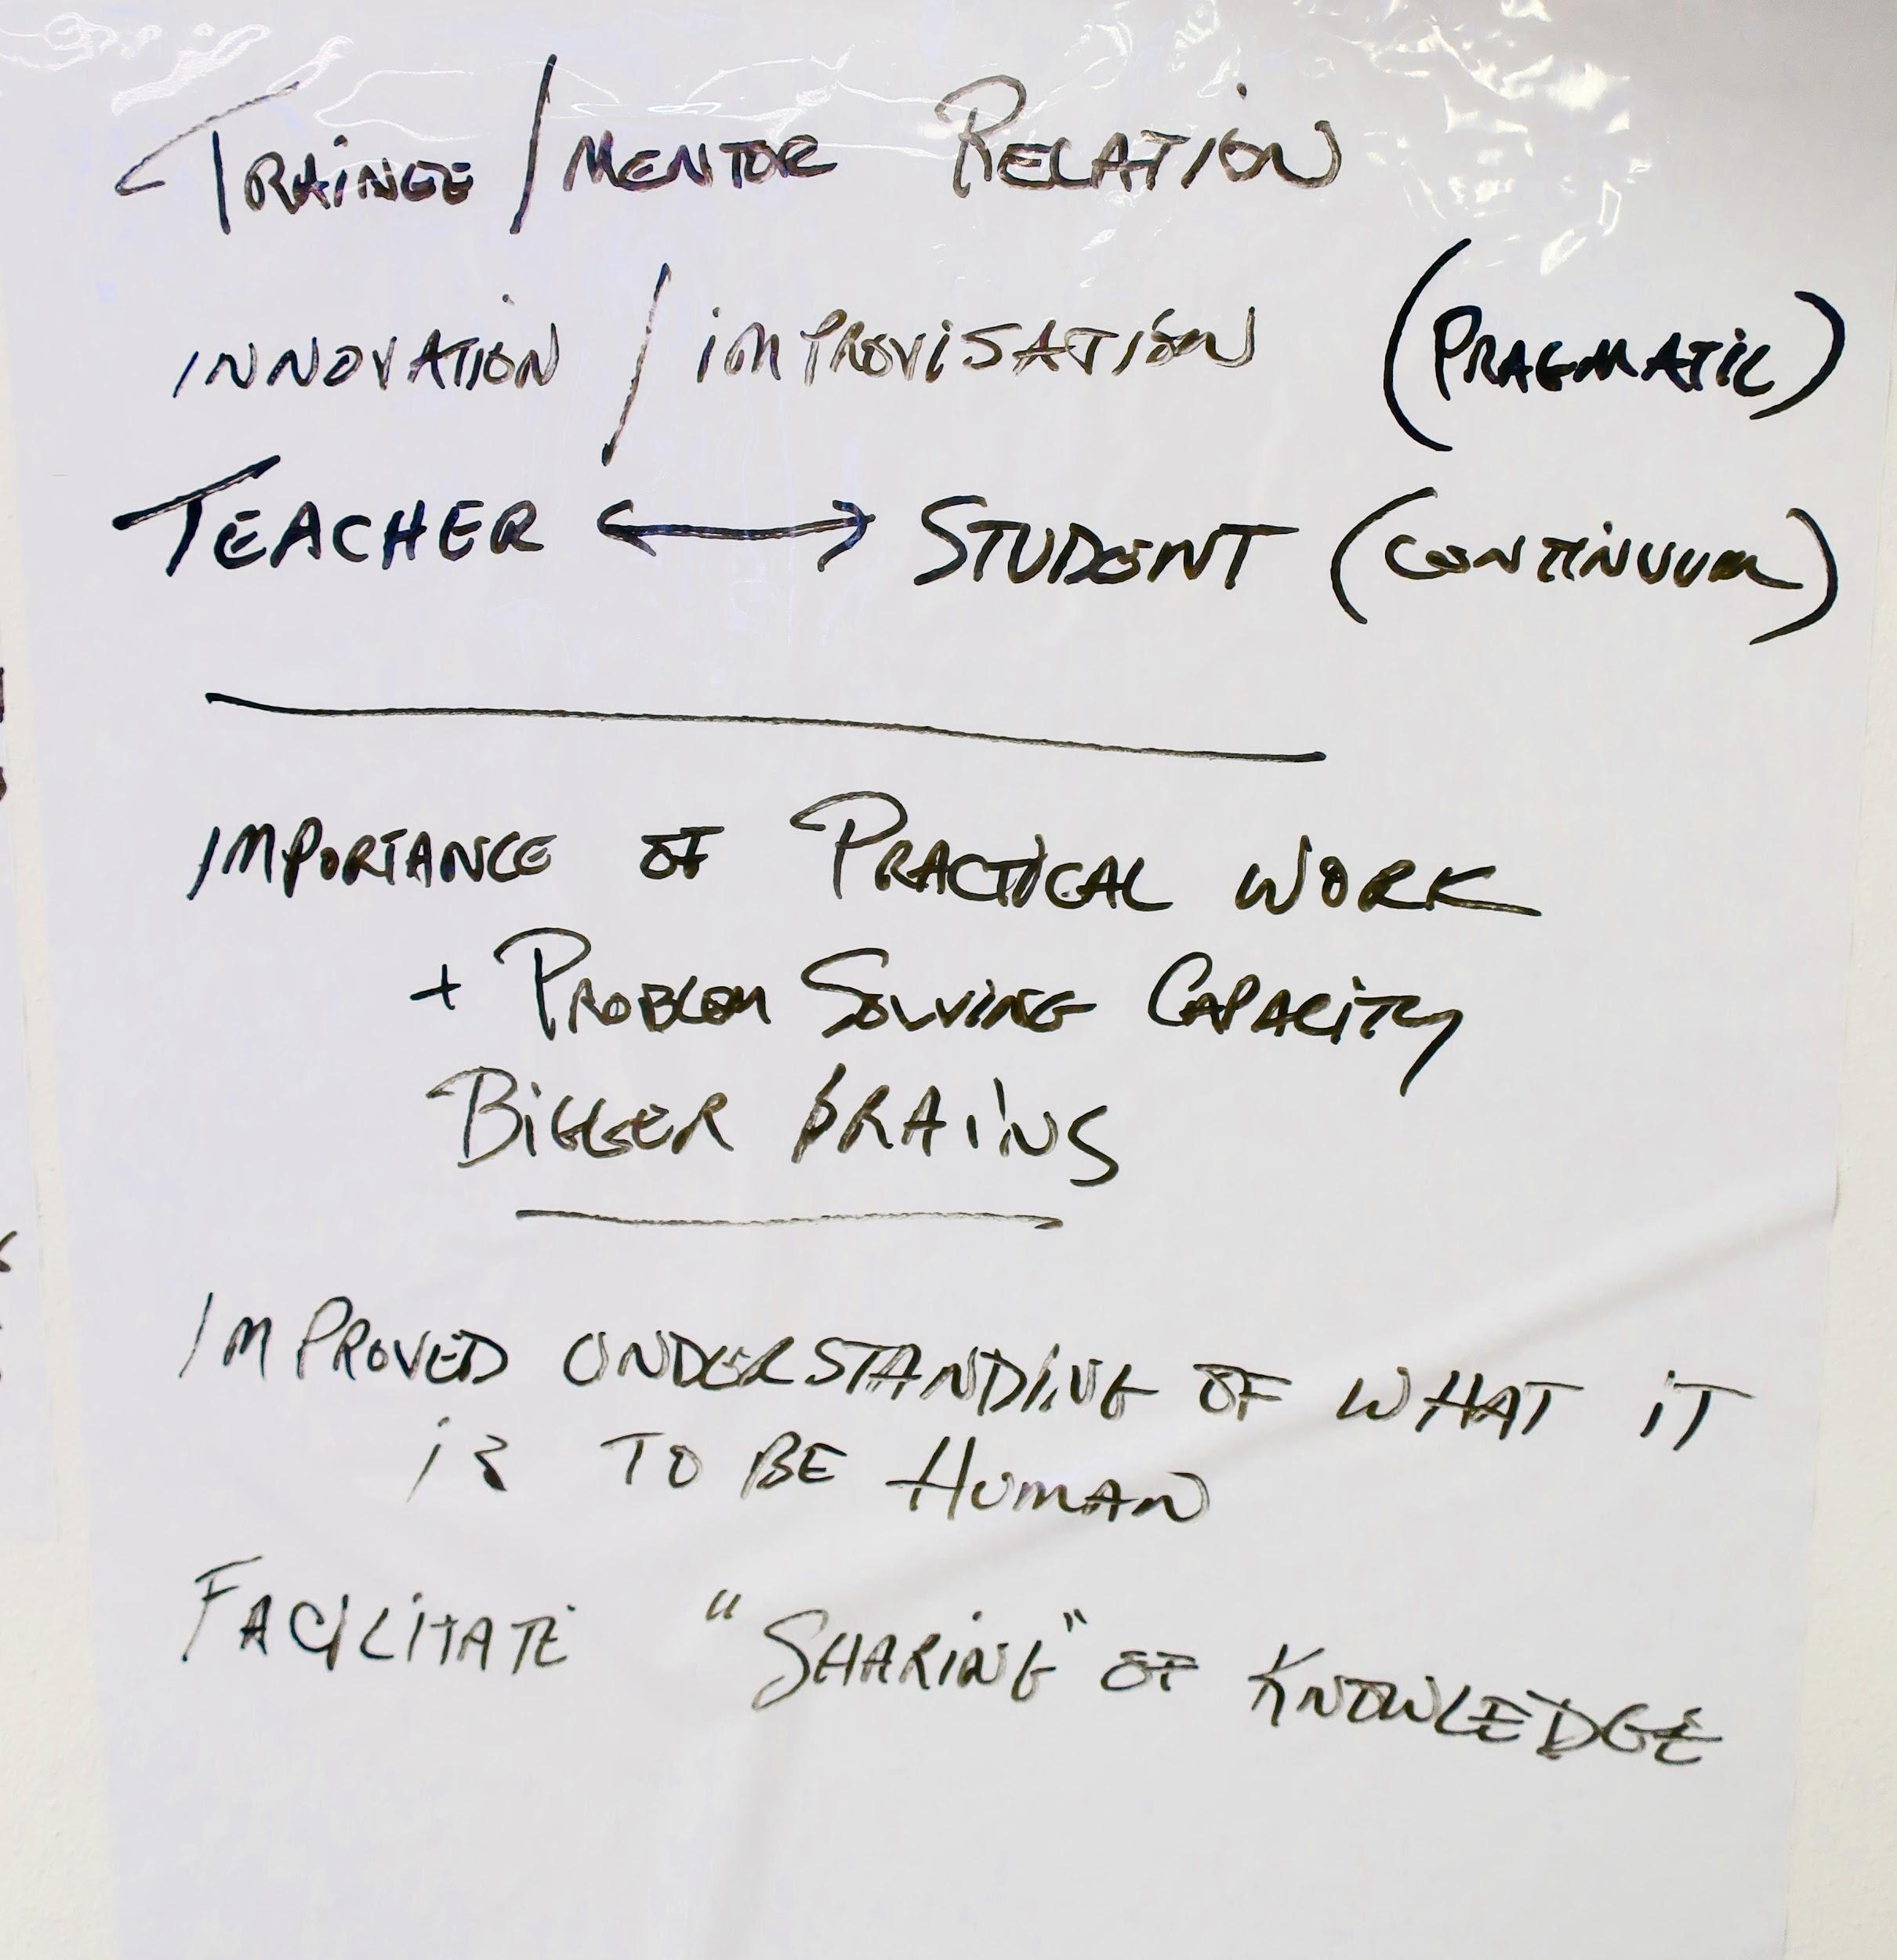 TRAINEE / MENTOR RELATION
INNOVATION / IMPROVISATION (PRAGMATIC)
TEACHER ↔ STUDENT (CONTINUUM)
IMPORTANCE OF PRACTICAL WORK
+ PROBLEM SOLVING CAPACITY
BIGGER BRAINS
IMPROVED UNDERSTANDING OF WHAT IT
IS TO BE HUMAN
FACILITATE "SHARING" OF KNOWLEDGE